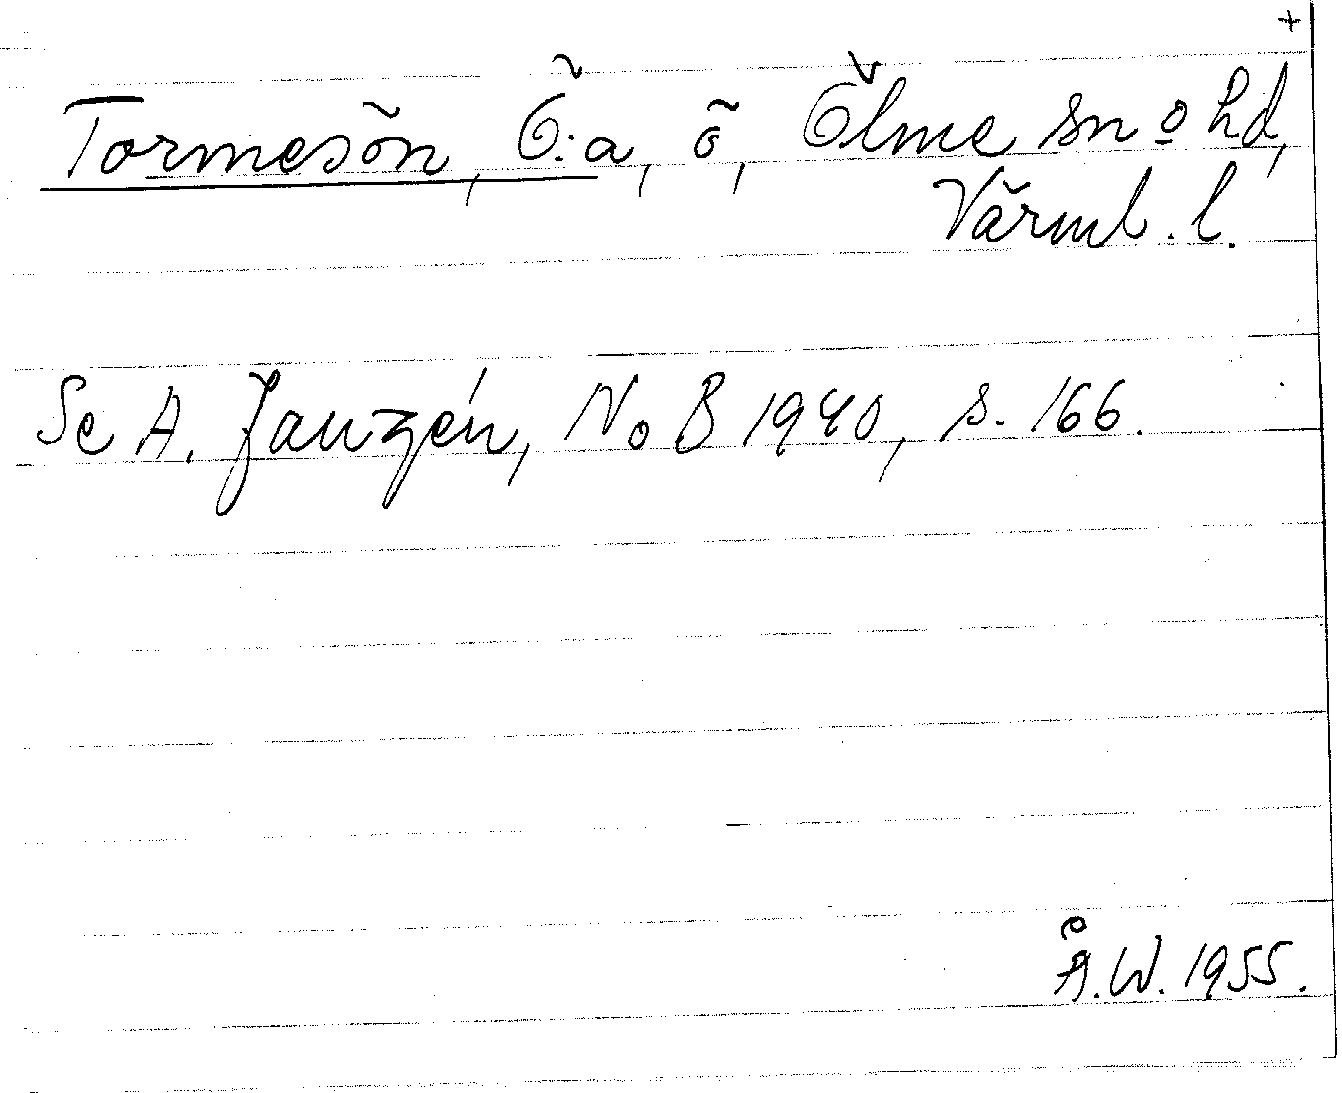 +
Tormesön, Ö:a, ö, Ölme sn o hd,
Värml. l.
Se A. Janzén, NoB 1940, s. 166.
Å.W. 1955.